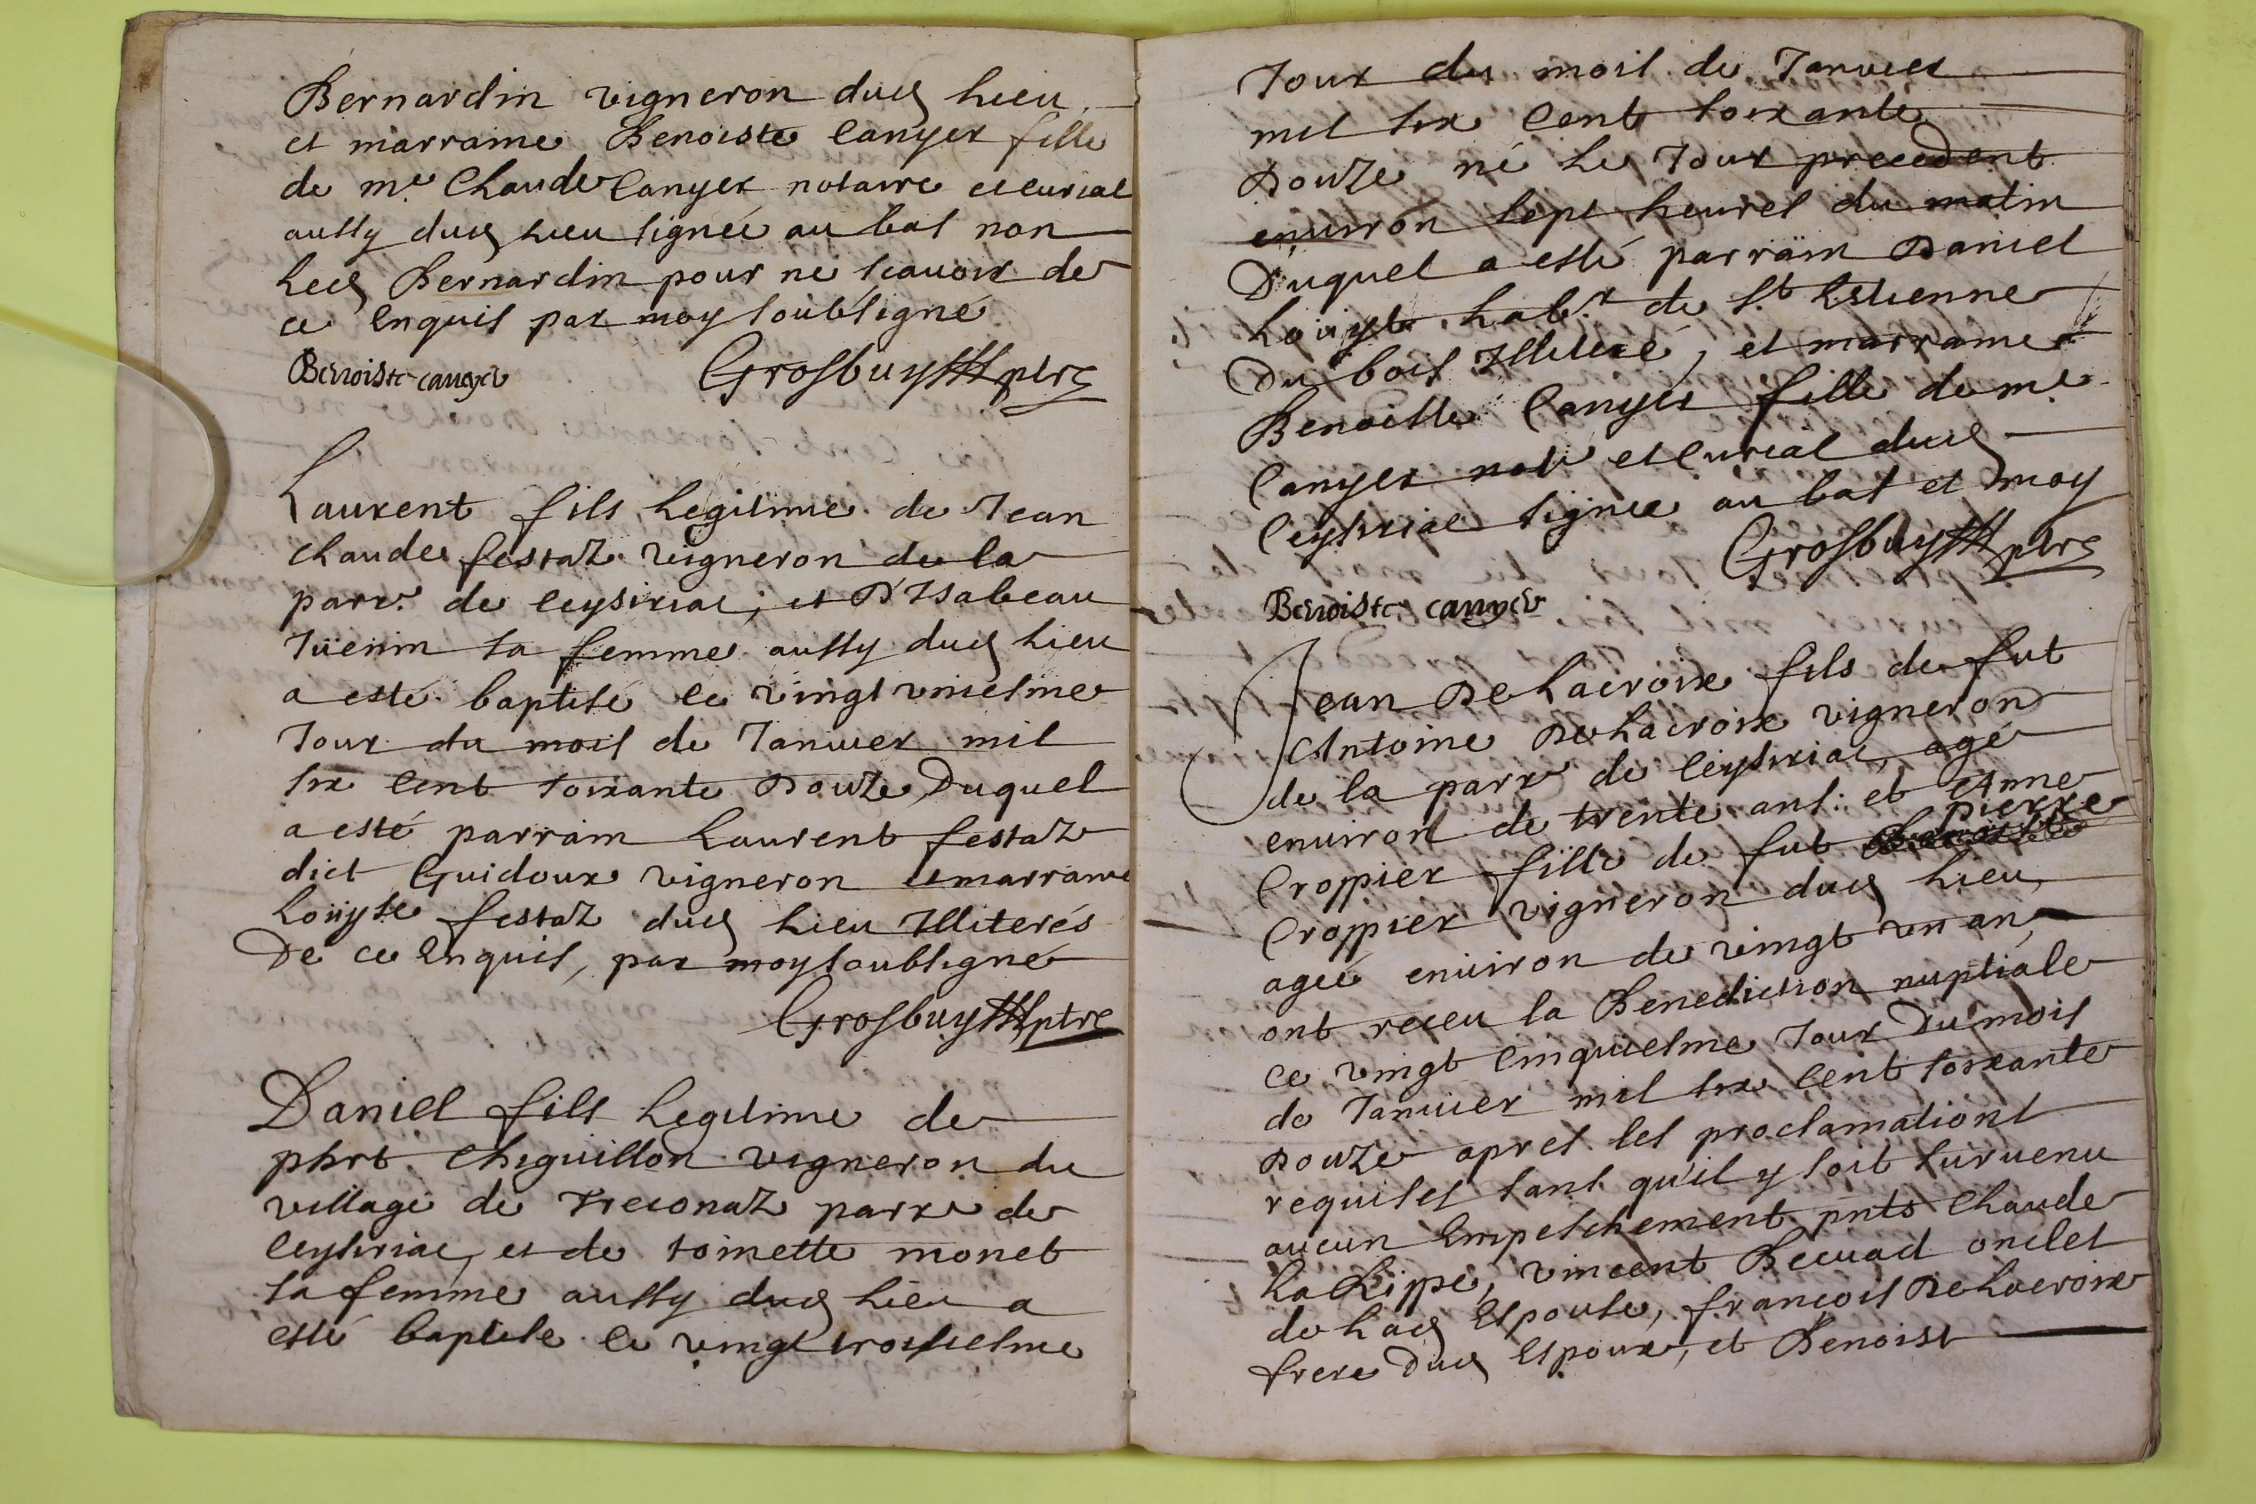 Bernardin vigneron dud lieu
et marraine Benoiste Canyer fille
de me. Claude Canyer notaire et curial
aussy dud lieu signée au bas non
led Bernardin pour ne scavoir de
ce enquis par moy soubsigné
Benoiste canyer Grosbuys ptre
Laurent fils legitime de Jean
claude festaz vigneron de la
parr. de ceysiriac, et D'Isabeau
Jüenin sa femme aussy dud lieu
a esté baptisé le vingt uniesme
Jour du mois de Januier mil
six cent soixante Douze, Duquel
a esté parrain Laurent festaz
dict Guidoux vigneron et marraine
Loüyse festaz dud lieu Illiterés
De ce enquis, par moy soubsigné
Grosbuys ptre
Daniel fils Legitime de
phrt Chiguillon vigneron du
village de Treconaz parre de
ceysiriac, et de toinette monet
sa femme aussy dud lieu a
esté baptise le vingt troisiesme
Jour du mois de Januier
mil six cent soixante
Douze né le Jour precedent
enuiron sept heures du matin
Duquel a esté parrain Daniel
Loüyt habt. de St Estienne
Du bois Illiteré, et marraine
Benoiste Canyer fille de me
Canyer note et curial dud
Ceysiriac signée au bas et moy
Grosbuys ptre
Benoiste canyer
Jean De Lacroix fils de fut
Antoine De Lacroix vigneron
de la parr de ceysiriac, agé
enuiron de trente ans: et Anne
pierre
Croppier fille de fut
Croppier vigneron dud lieu,
ageé enuiron de vingt un an,
ont receu la Benediction nuptiale
ce vingt cinquiesme Jour Du mois
de Januier mil six cent soixante
Douze apres les proclamations
requises sans qu'il y soit suruenu
aucun empeschement pnts Claude
La Lippe, vincent Becuad oncles
de Lad espouse, françois De Lacroix
frere Dud espoux, et Benoist